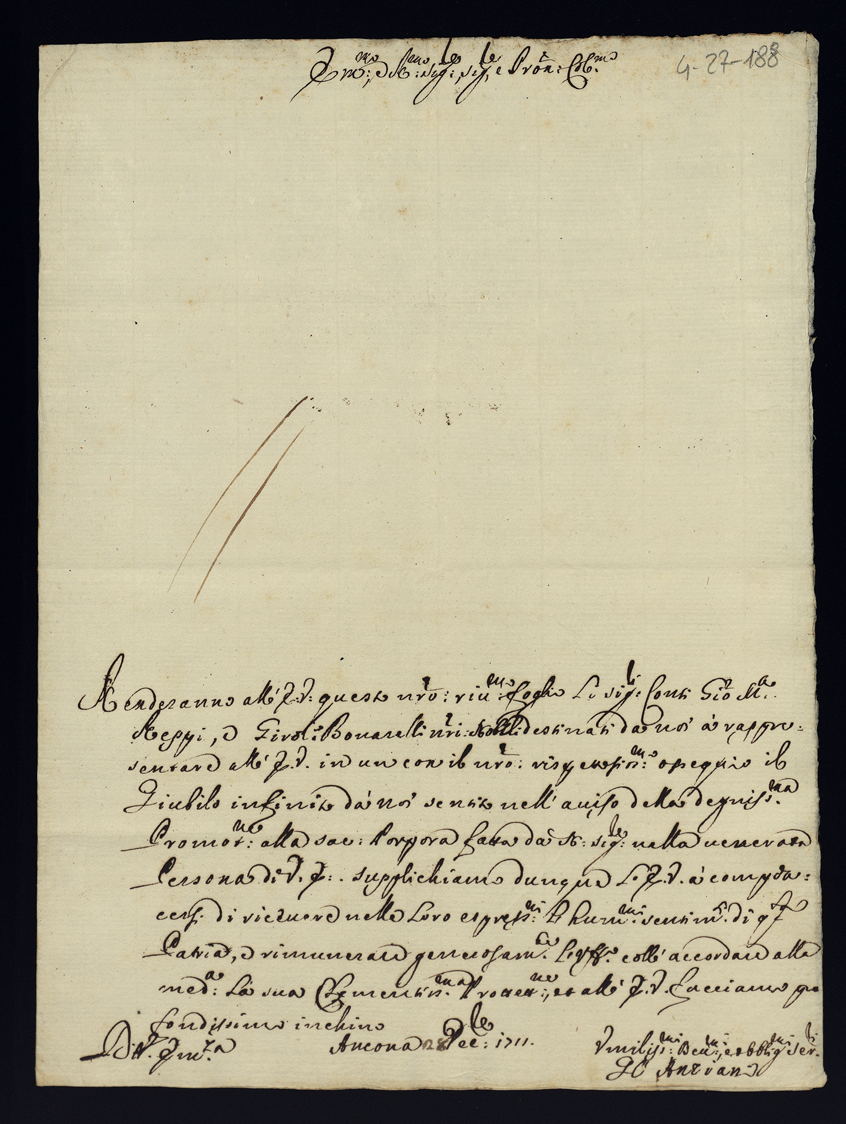 Em.mo, e R.mo Sig.re, Sig.re e Prōn: Col.mo
4-27-188
Renderanno all'E.V: questo nrō: riu.mo foglio Li Sig.ri Conti Gio M.a
Reppi, e Girol: Bonarelli nri: destinati da noi à rappre=
sentare all'E.V. in un con il nrō: rispettosiss.mo ossequio il
Giubilo infinito da noi sentito nell'auiso della degniss.ma
Promoz.ne: alla sac: Porpora fatta da N: Sig.re nella venerata
Persona di V.E:. supplichiamo dunque L'E.V. à compia=
cersi di riceuere nelle Loro espress.ni Li hum.mi sentim.ti di q.ta
Patria, e rimunerare generosam.te coll'accordare alla
med.a La sua Clementiss.ma Protett.ne, et all'E.V. facciamo pro
fondissimo inchino
Di V. Em.za
Ancona 28 Xbe: 1711.
Vmiliss.mi Deu.mi, et obblig.mi Ser.ri
Gl'Anziani